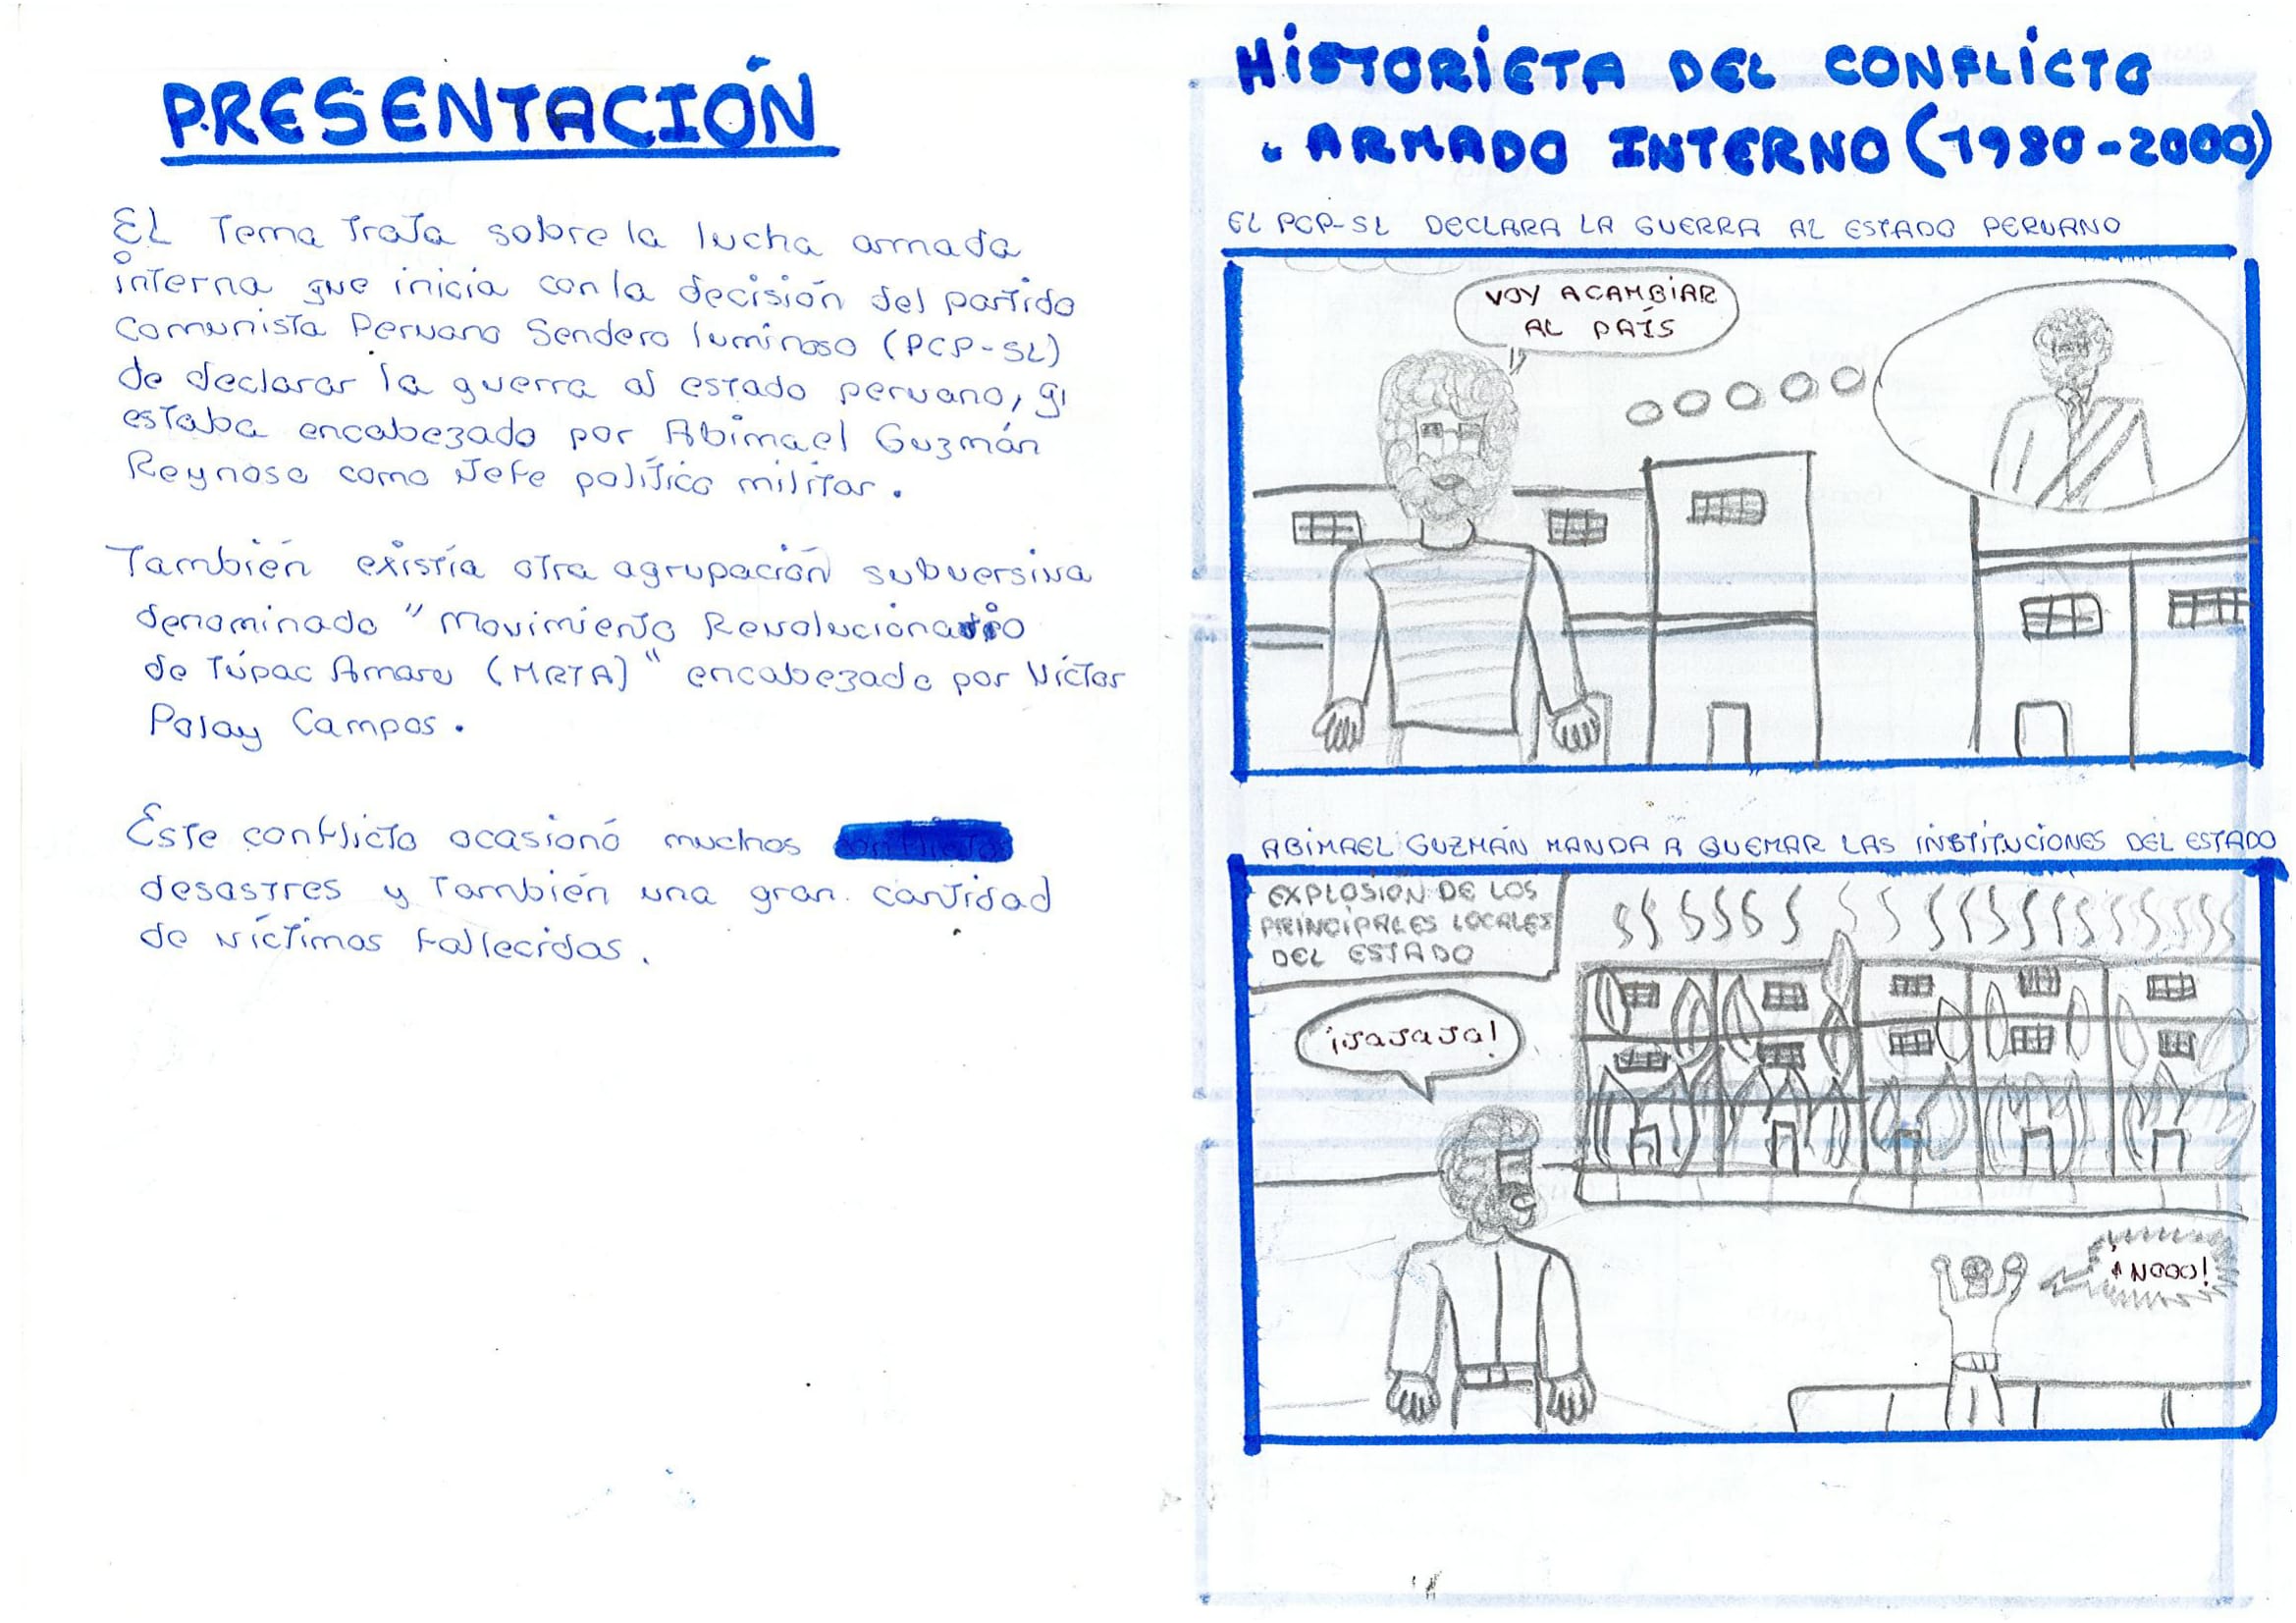 PRESENTACIÓN
El Tema Trata sobre la lucha armada
interna que inicia con la decisión del partido
Comunista Peruano Sendero luminoso (PCP-SL)
de declarar la guerra al estado peruano, q'
estaba encabezado por Abimael Guzmán
Reynoso como Jefe político militar.
También existía otra agrupación subversiva
denominado "Movimiento Revolucionario
de Túpac Amaru (MRTA)" encabezado por Víctor
Polay Campos.
Este conflicto ocasionó muchos
desastres y También una gran cantidad
de víctimas fallecidas.
HISTORIETA DEL CONFLICTO
ARMADO INTERNO (1980-2000)
EL PCP-SL DECLARA LA GUERRA AL ESTADO PERUANO
VOY A CAMBIAR
AL PAÍS
ABIMAEL GUZMÁN MANDA A QUEMAR LAS INSTITUCIONES DEL ESTADO
EXPLOSIÓN DE LOS
PRINCIPALES LOCALES
DEL ESTADO
¡JAJAJA!
¡NOOO!